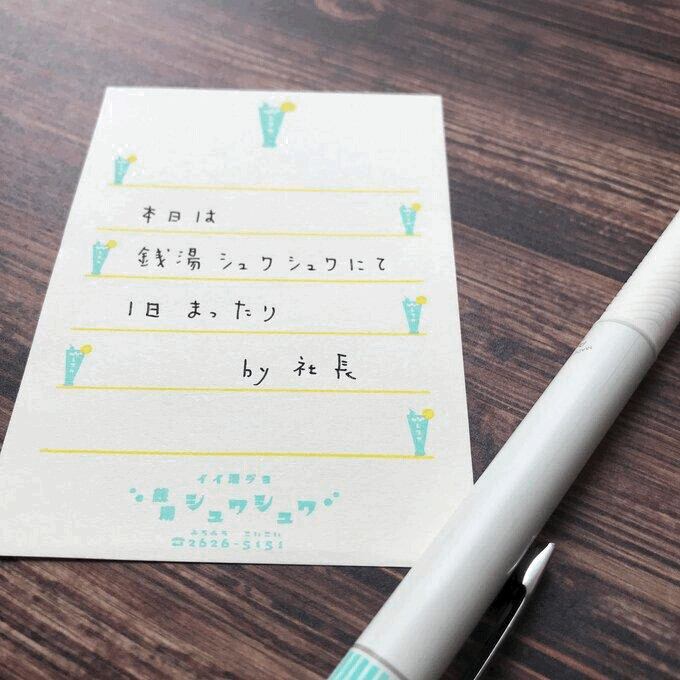 本日は
銭湯シュワシュワにて
1日 まったり
by 社長
イイ湯ダヨ
銭湯 シュワシュワ
ふろふろ こいこい
☎2626-5151